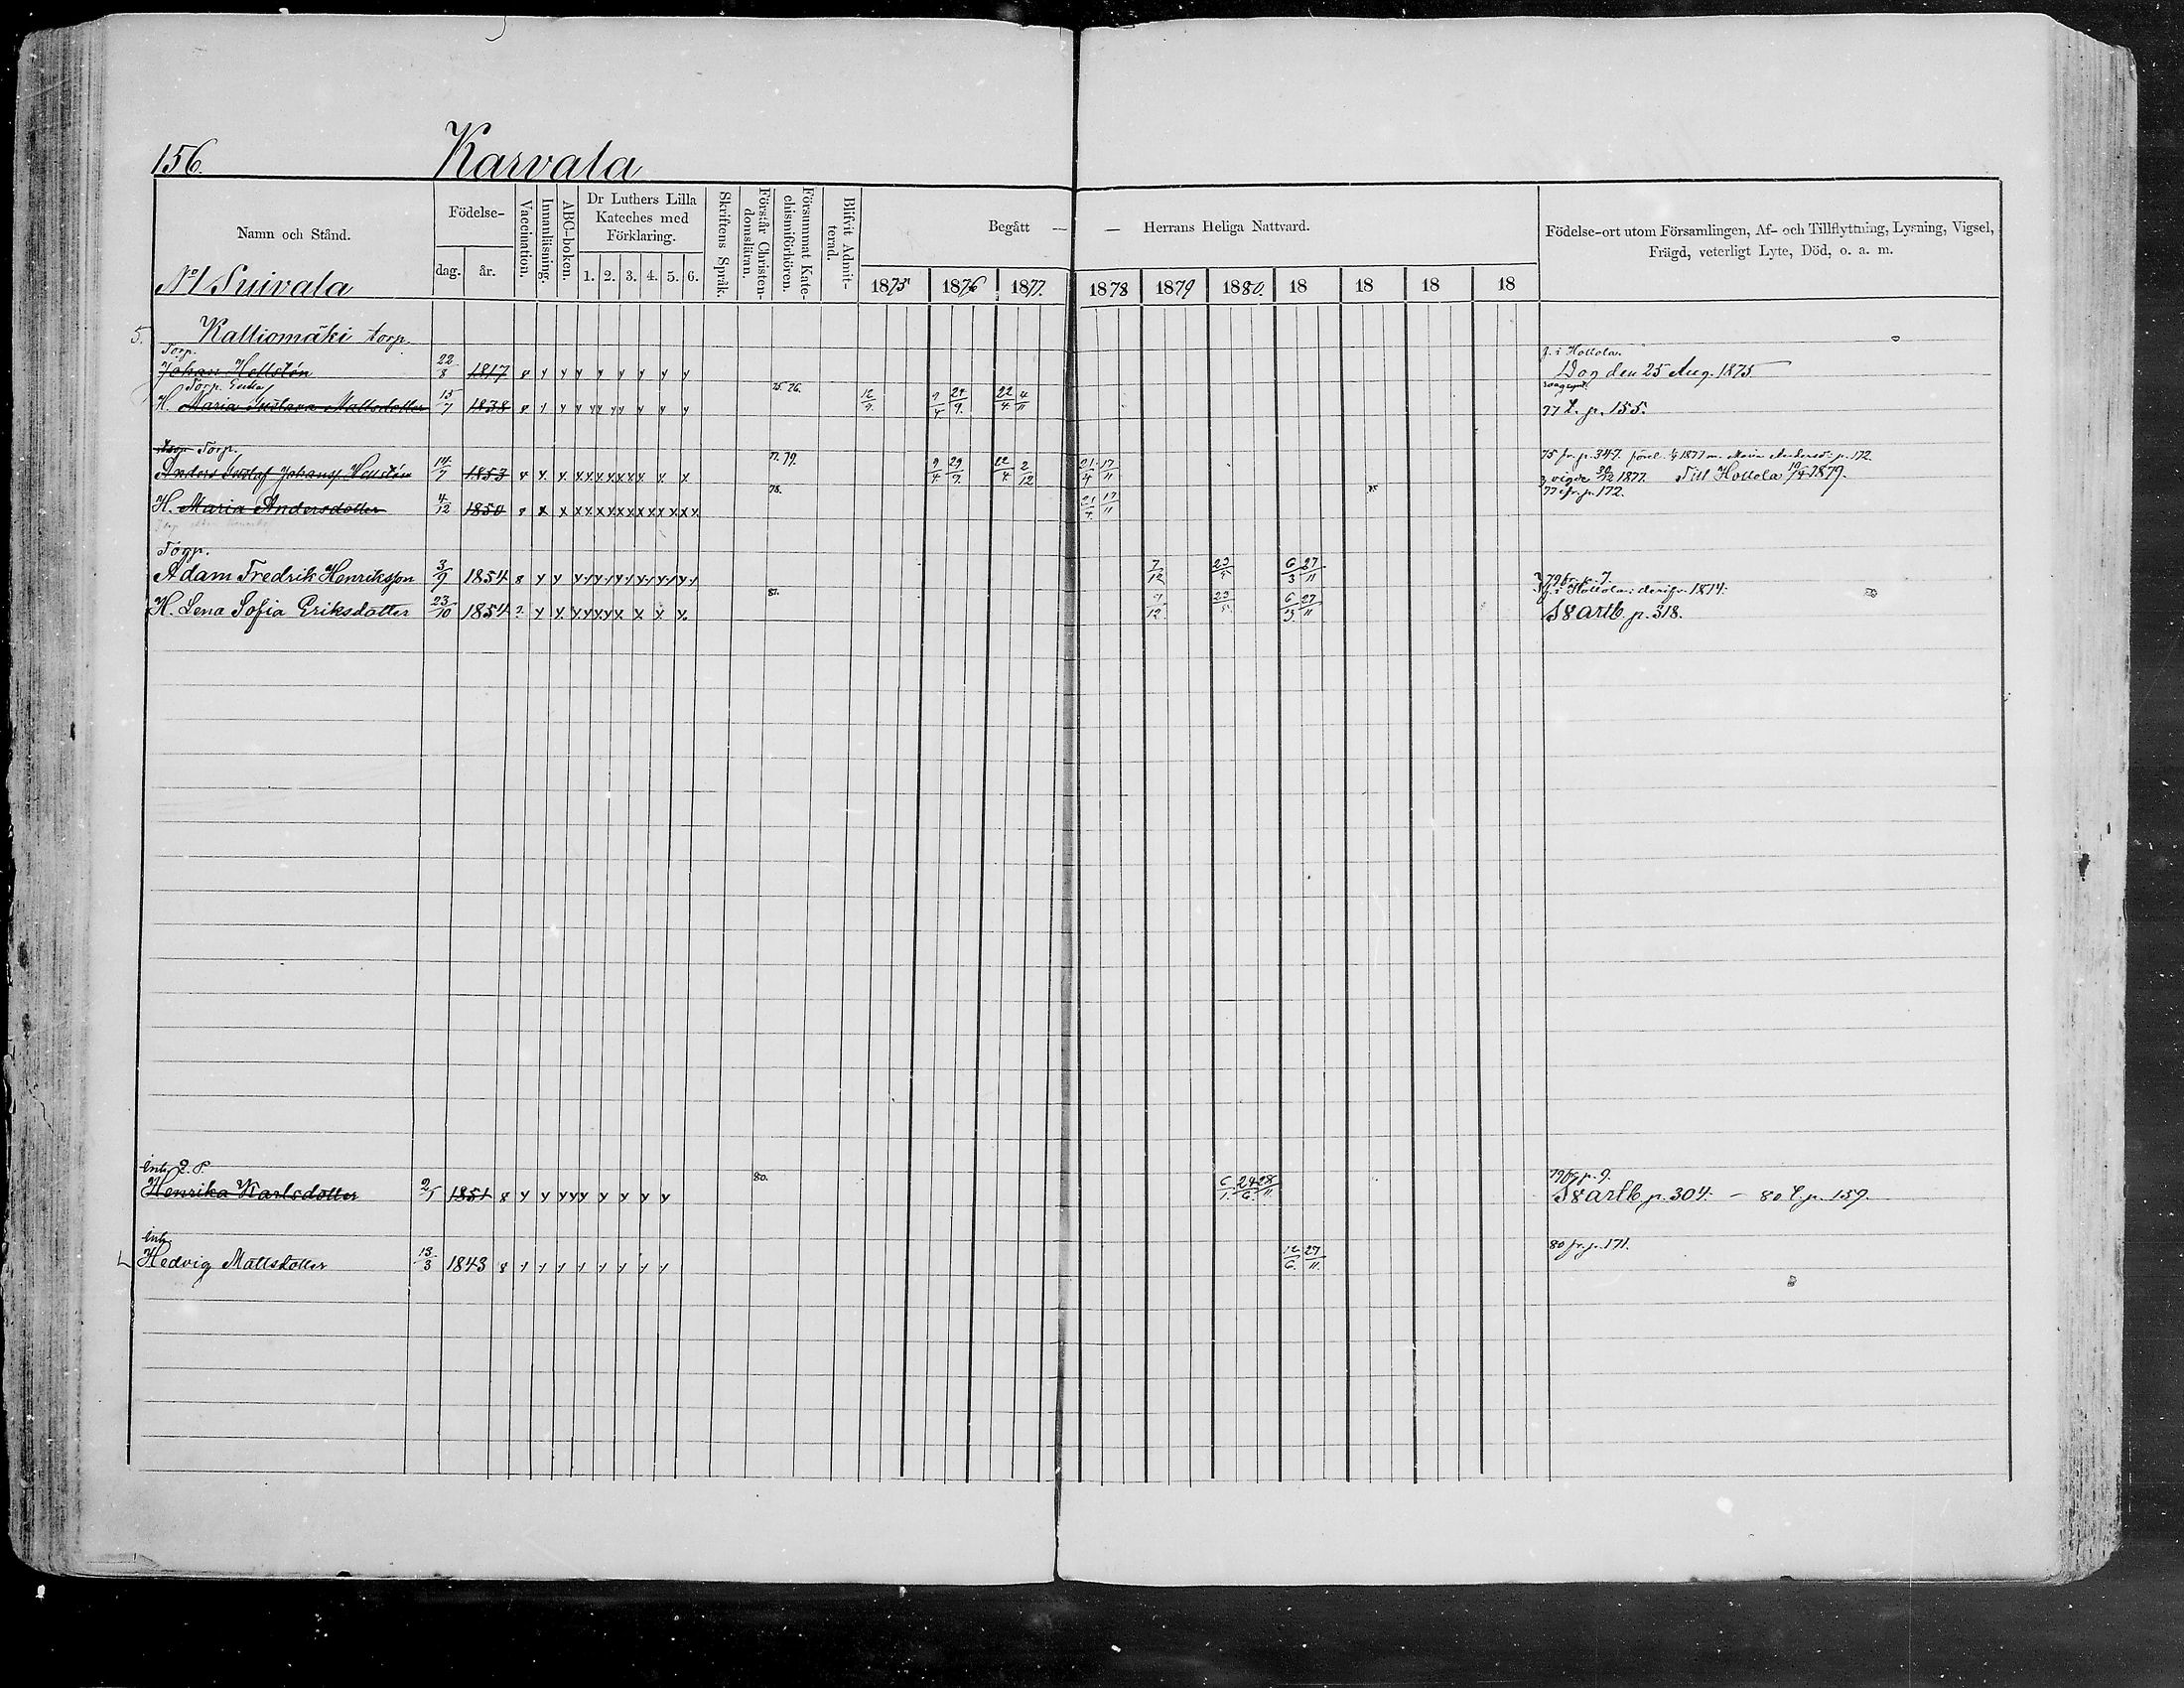 156. Karvala
Namn och Stånd.
Födelse-
dag. år.
Vaccination.
Innanläsning.
ABC-boken.
Dr Luthers Lilla
Kateches med
Förklaring.
1. 2. 3. 4. 5. 6.
Skriftens Språk.
Förstår Christen-
domsläran.
Försummat Kate-
chismiförhören.
Blifvit Admit-
terad.
Begått — — Herrans Heliga Nattvard.
1875 1876 1877. 1878 1879 1880. 18 18 18 18
Födelse-ort utom Församlingen, Af- och Tillflyttning, Lysning, Vigsel,
Frägd, veterligt Lyte, Död, o. a. m.
No 1 Suivala
5. Kalliomäki torp.
Torp. f. i Hollola.
Johan Hellstén 22/8 1817 Dog den 25 Aug. 1875
Torp. Enka 75. 76.
H. Maria Gustava Mattsdotter 15/7 1838 9/4 29/9. 22/4 4/11 77 t. p. 155.
Torp. 77. 79. 75 fr. p. 347. p. 172.
Anders Gustaf Johanss Hellstén 14/7 1853 9/4 29/9. 22/4 2/12 21/4 17/11 vigde 26/12 1877. Till Hollola 10/4 1879.
78. 77 fr. p. 172.
H. Maria Andersdotter 4/12 1850 21/4 17/11
Torp.
Adam Fredrik Henriksson 3/9 1854 7/12 23/5 6/3 27/11 79 fr. p. 7.
f. i Hollola: derifr. 1874.
H. Lena Sofia Eriksdotter 23/10 1854 7/12. 23/5. 6/3. 27/11 S8 artb p. 318.
inh. 80. 79 fr p. 9.
Henrika Karlsdotter 2/1 1851 6/1. 24/6. 28/11 S8 artb p. 304. — 80 t. p. 159.
inh. 80 fr. p. 171.
Hedvig Mattsdotter 13/3 1843 12/6. 27/11.